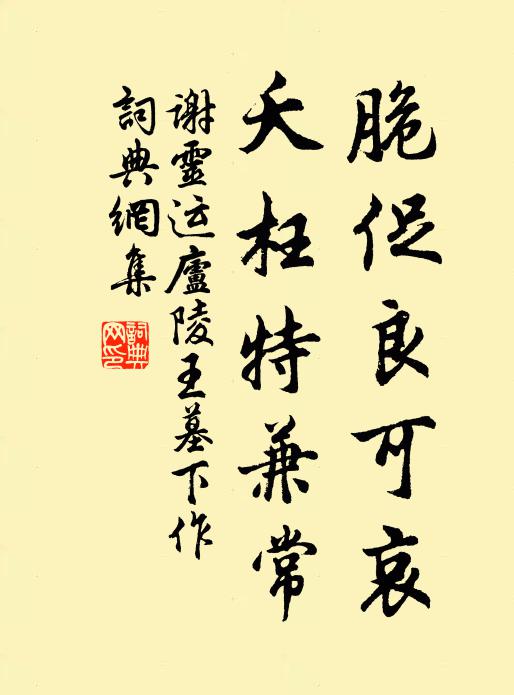 脆促良可哀
夭枉特兼常
谢靈运廬陵王墓下作
詞典網集
詞典网印